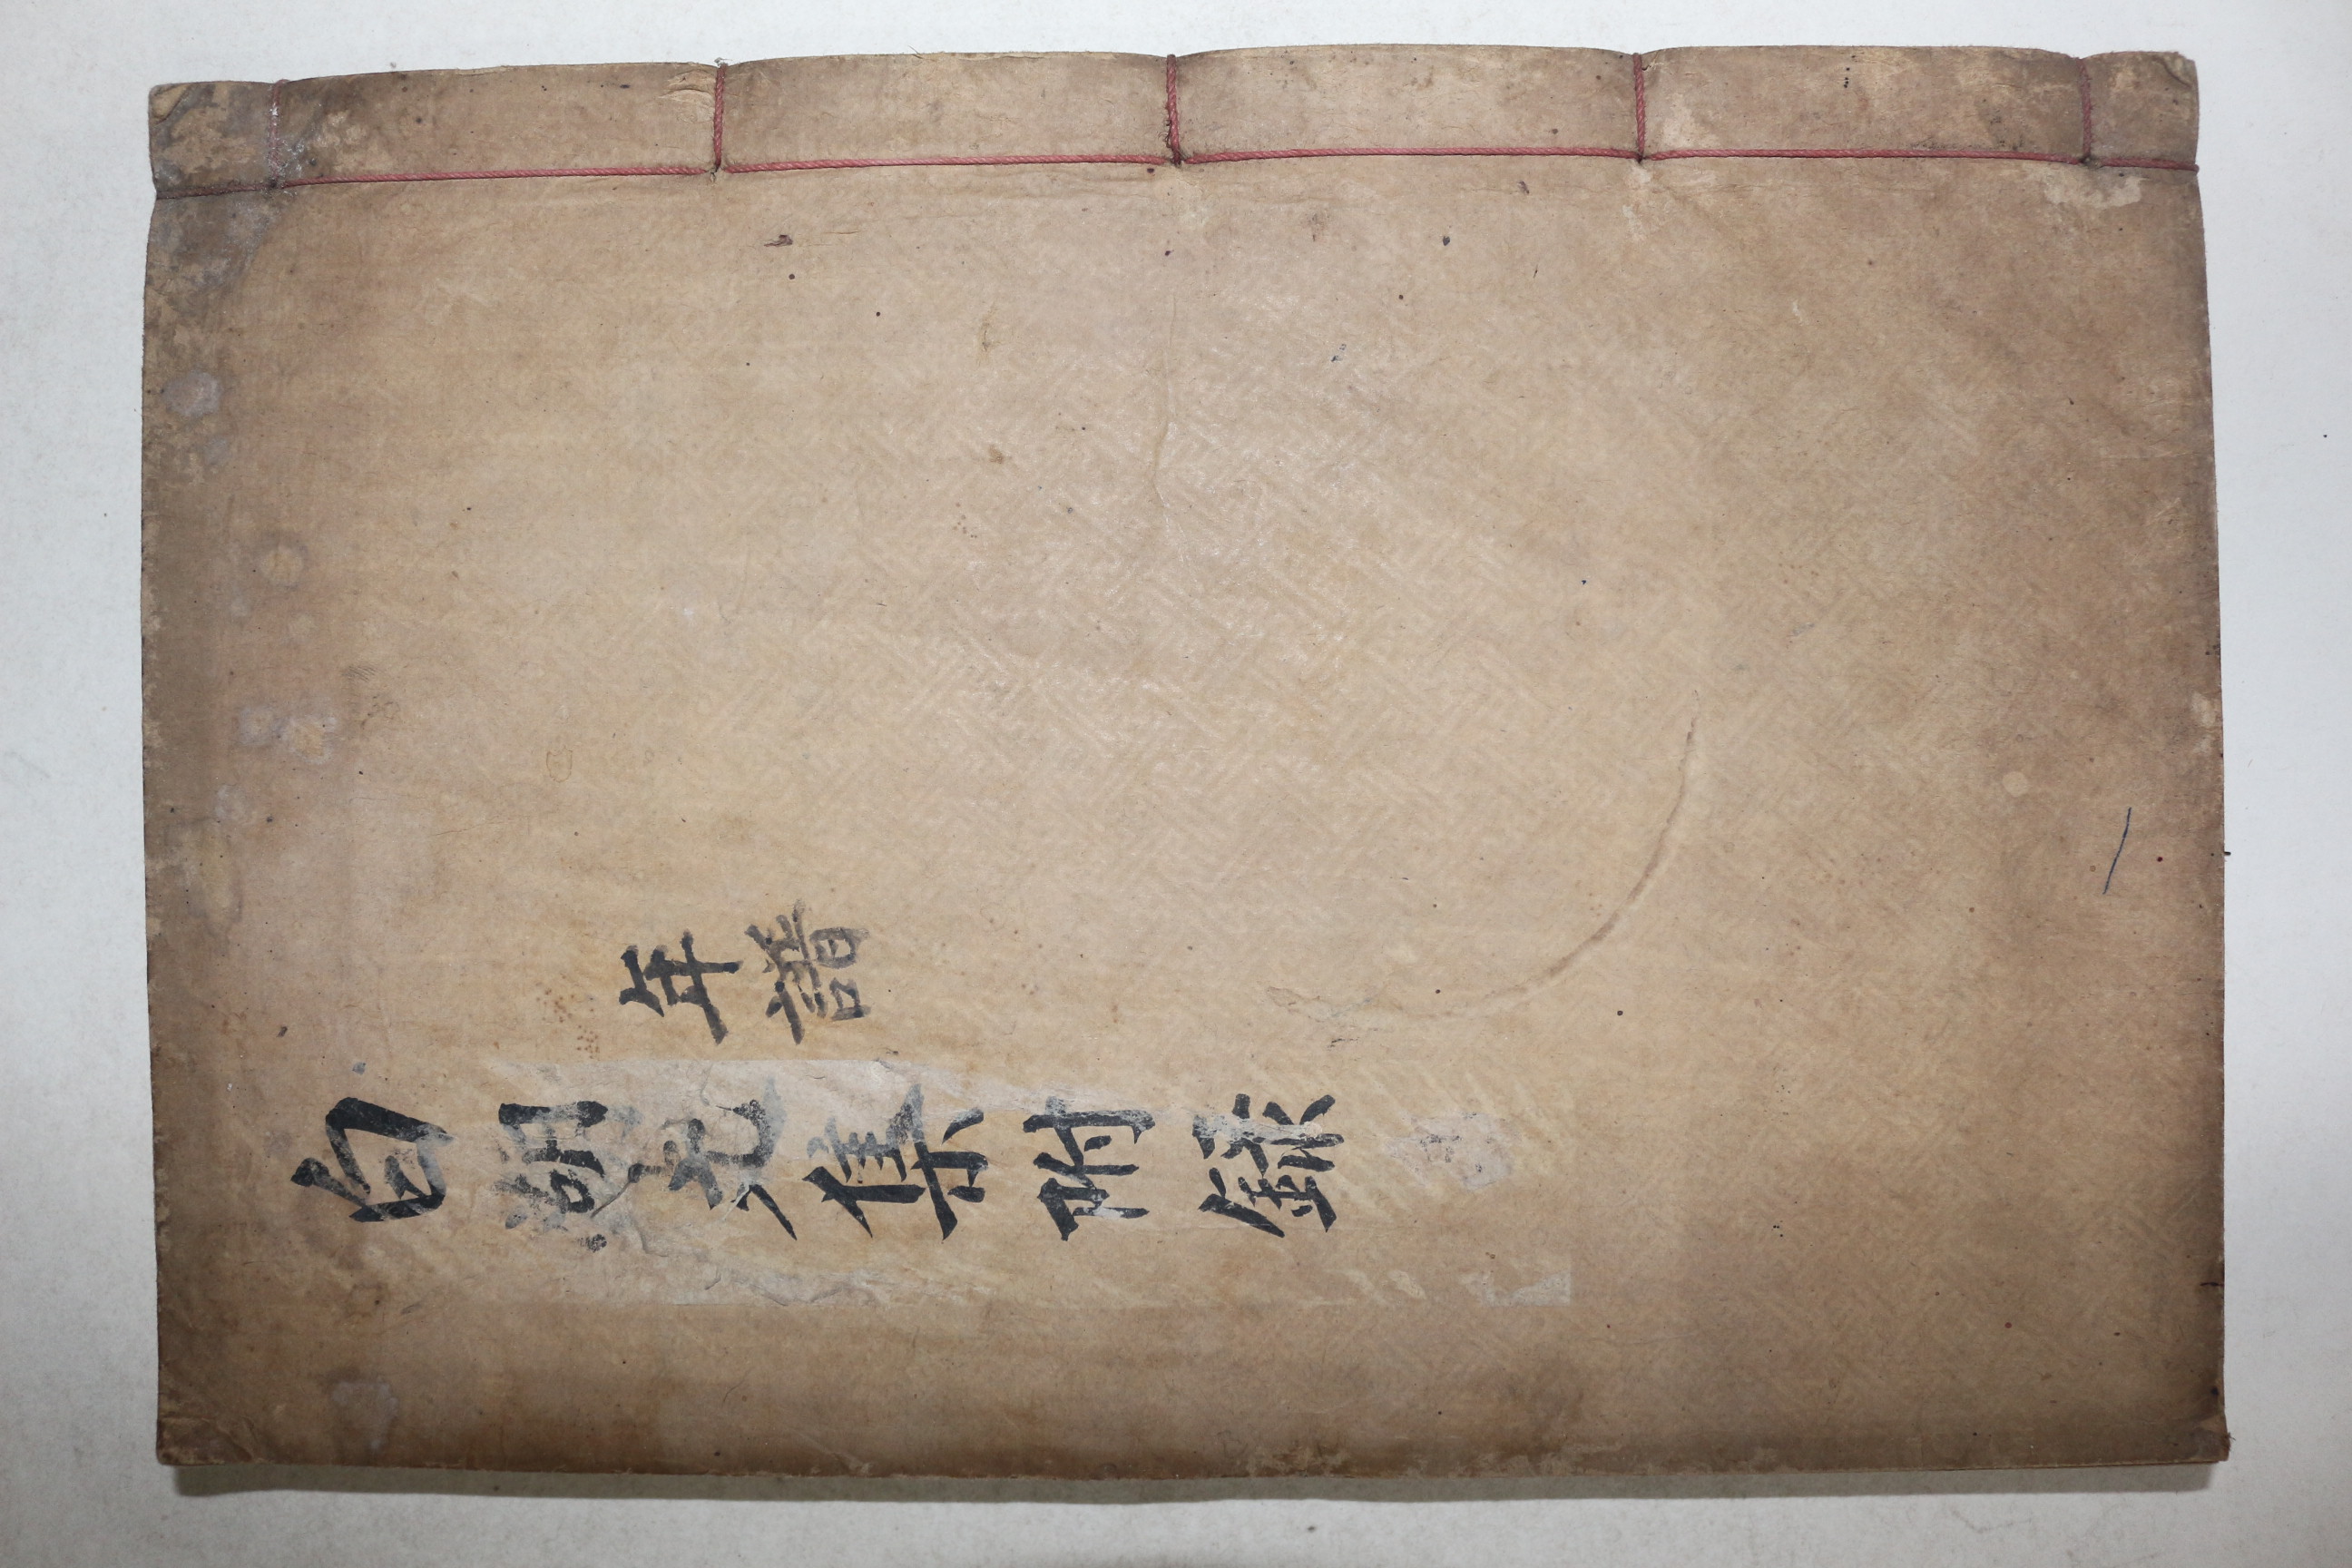 年譜
白湖先集附錄